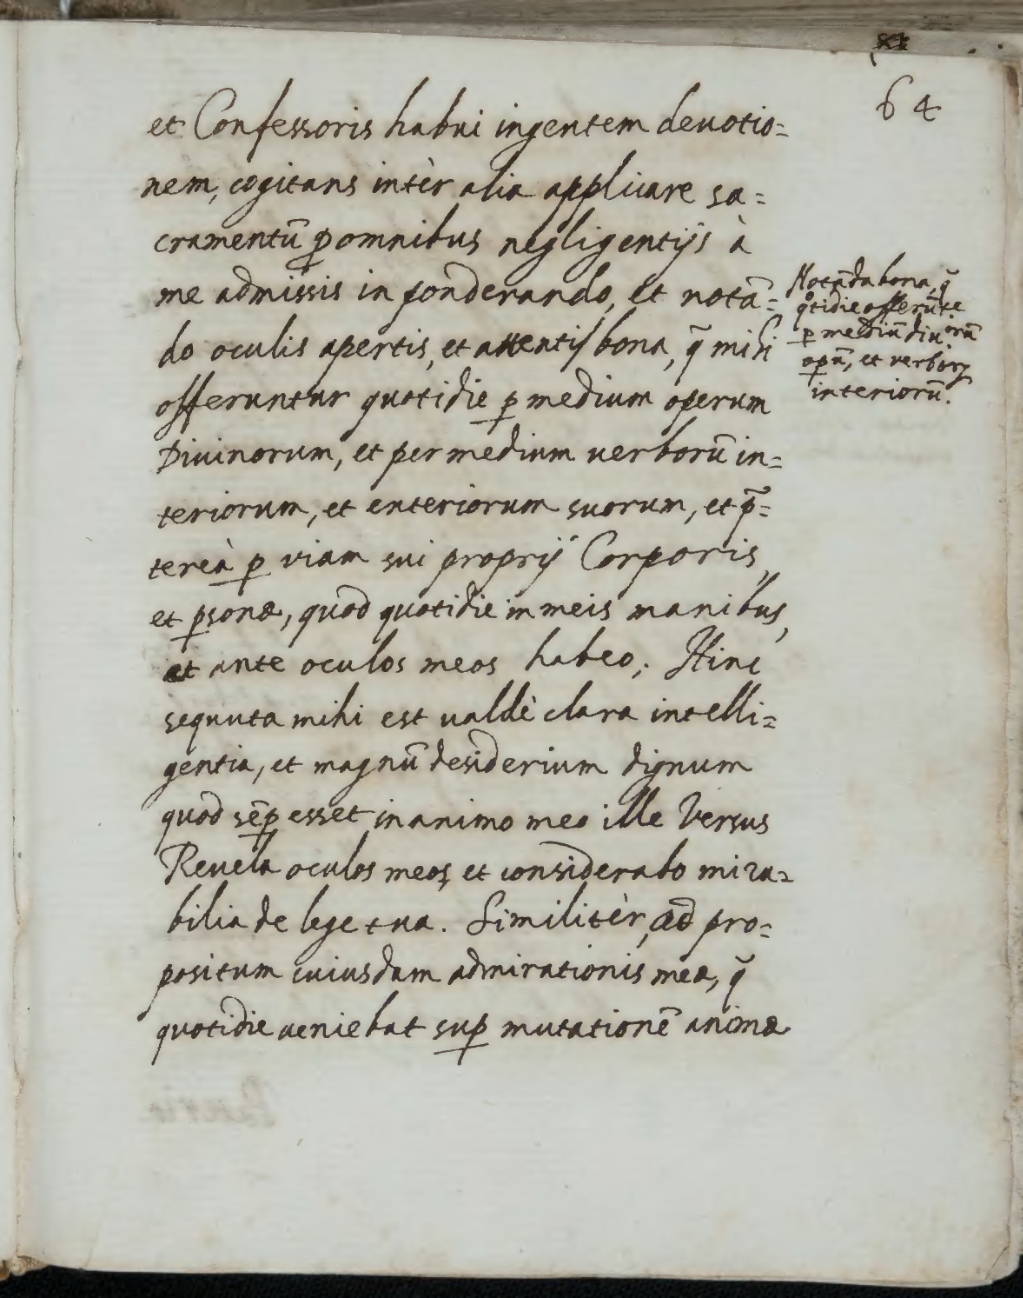 64
et Confessoris habui ingentem deuotio=
nem, cogitans intèr alia applicare sa=
cramentū ꝑ omnibus negligentijs à
me admissis in ponderando, et notā=
do oculis apertis, et attentis bona, q̄ mihi
offeruntur quotidie ꝑ medium operum
Diuinorum, et per medium uerborū in=
teriorum, et exteriorum suorum, et p̄=
tereà ꝑ viam sui proprij Corporis,
et ꝑsonæ, quod quotidie in meis manibus,
et ante oculos meos habeo; Hinc
sequuta mihi est ualdè clara intelli=
gentia, et magnū desiderium dignum
quod sēꝑ esset in animo meo ille Versus
Reuela oculos meos, et considerabo mira=
bilia de lege tua. Similitèr, ad pro=
positum cuiusdam admirationis meæ, q̄
quotidie ueniebat suꝑ mutationē animæ
Notāda bona, q̄
qͦtidie offerūt
ꝑ mediū diu.orū
oꝑū, et uerboꝝ
interiorū.